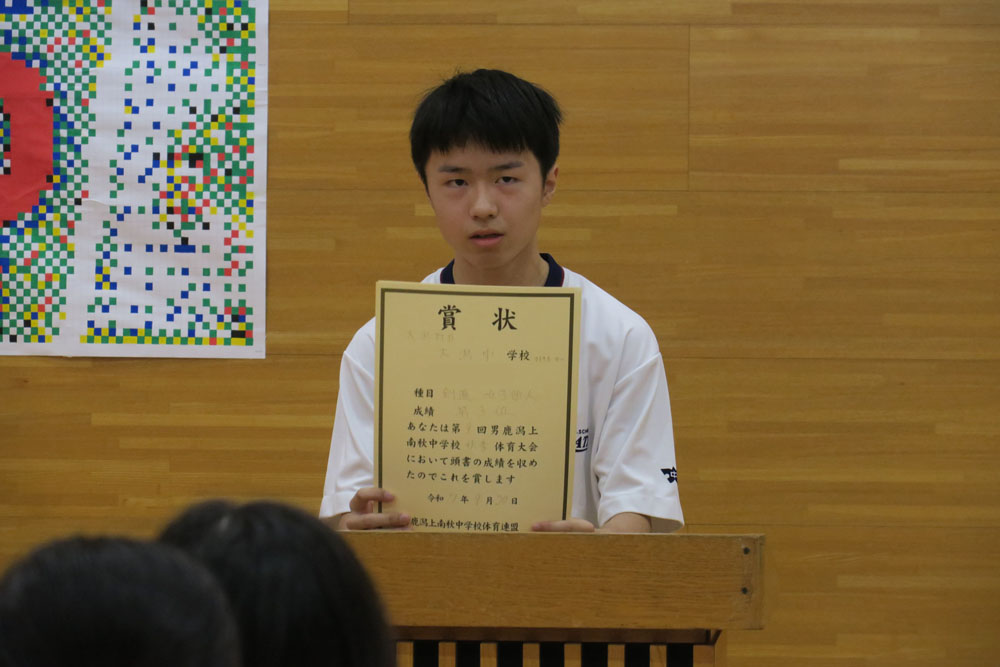 賞状
大潟村立
大潟中学校
種目 剣道 女子個人
成績 第3位
あなたは第 回男鹿潟上
南秋中学校秋季体育大会
において頭書の成績を収め
たのでこれを賞します
令和 年9月 日
鹿潟上南秋中学校体育連盟